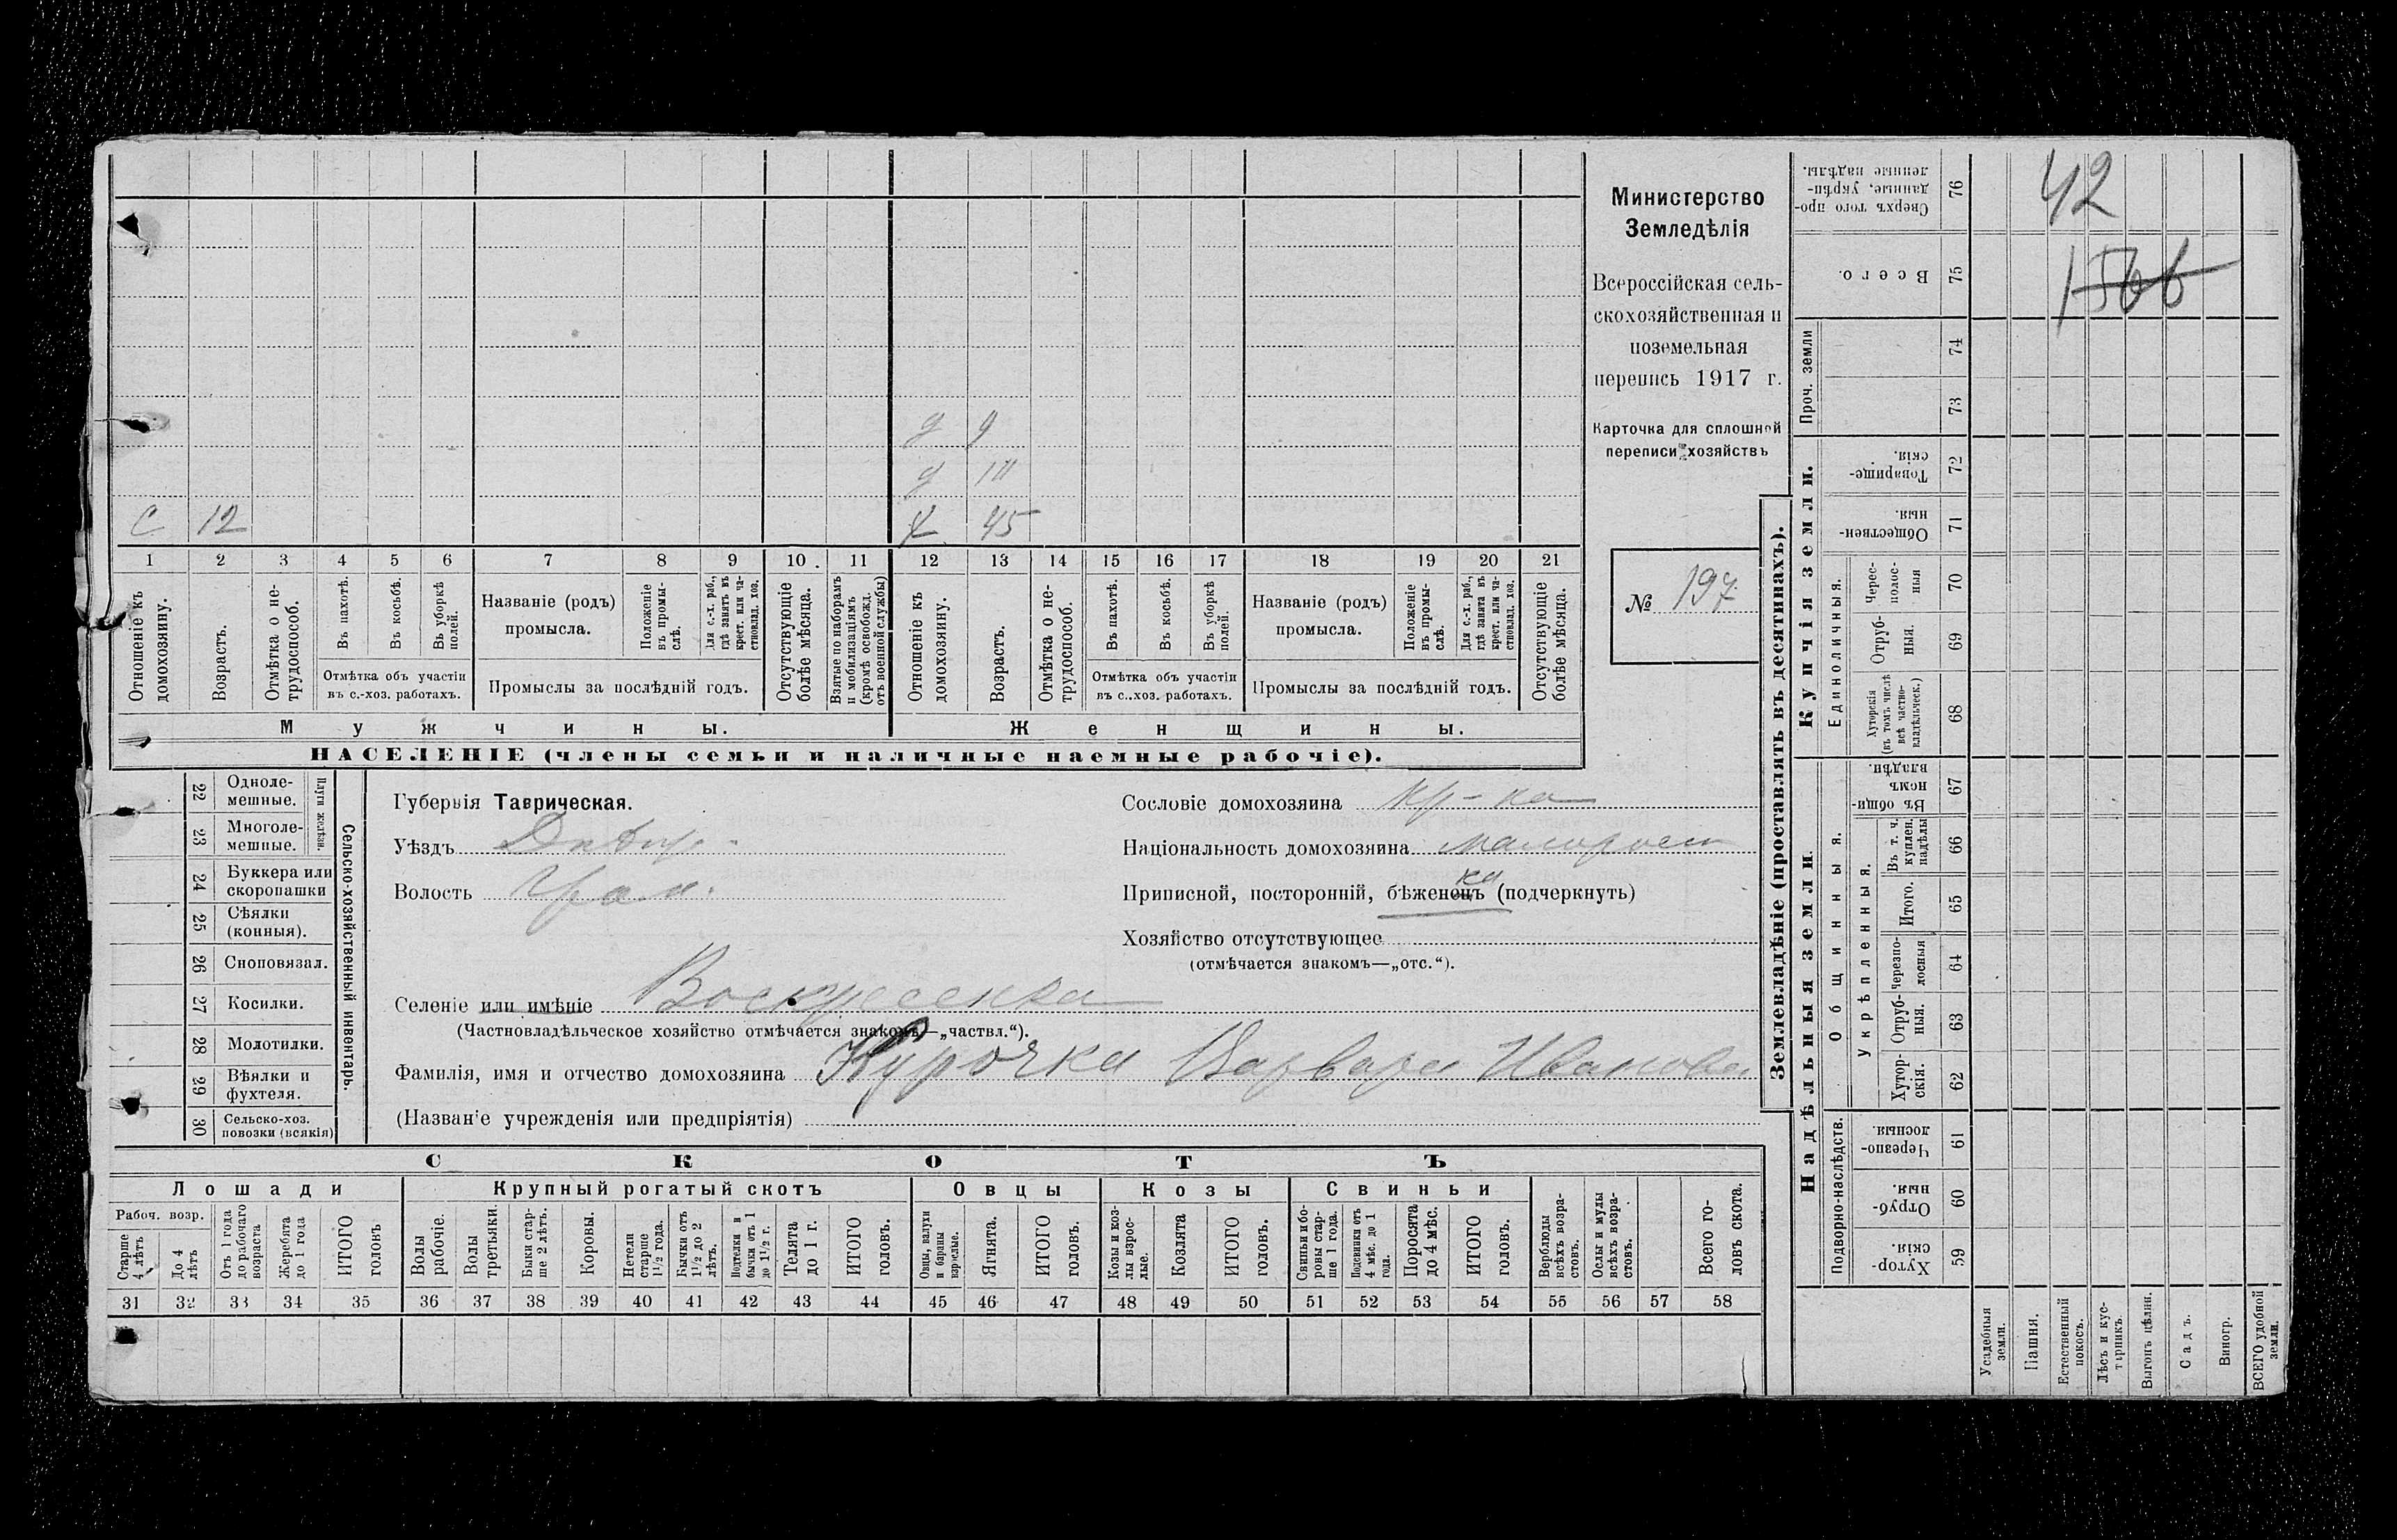 42
1566
С 12
д 9
д
Х 45
1 2 3 4 5 6 7 8 9 10 11 12 13 14 15 16 17 18 19 20 21
Отношеніе къ домохозяину.
Возрастъ.
Отмѣтка о нетрудоспособ.
Въ пахотѣ.
Въ косьбѣ.
Въ уборкѣ полей.
Отмѣтка объ участіи
въ с.-хоз. работахъ.
Названіе (родъ)
промысла.
Положеніе въ промыслѣ.
Для с.-х. раб., гдѣ занятъ въ крест. или частновлад. хоз.
Промыслы за послѣдній годъ.
Отсутствующіе болѣе мѣсяца.
Взятые по наборамъ и мобилизаціямъ (кромѣ освобожд. отъ военной службы)
Отношеніе къ домохозяину.
Возрастъ.
Отмѣтка о нетрудоспособ.
Въ пахотѣ.
Въ косьбѣ.
Въ уборкѣ полей.
Отмѣтка объ участіи
въ с.-хоз. работахъ.
Названіе (родъ)
промысла.
Положеніе въ промыслѣ.
Для с.-х. раб., гдѣ занята въ крест. или частновлад. хоз.
Промыслы за послѣдній годъ.
Отсутствующіе болѣе мѣсяца.
Мужчины.
Женщины.
НАСЕЛЕНІЕ (члены семьи и наличные наемные рабочіе).
Министерство
Земледѣлія
Всероссійская сель-
скохозяйственная и
поземельная
перепись 1917 г.
Карточка для сплошной
переписи хозяйствъ
№ 197
22 Одноле-
мешные.
23 Многоле-
мешные.
Плуги желѣзн.
24 Буккера или
скоропашки
25 Сѣялки
(конныя).
26 Сноповязал.
27 Косилки.
28 Молотилки.
29 Вѣялки и
фухтеля.
30 Сельско-хоз.
повозки (всякія)
Сельско-хозяйственный инвентарь.
Губернія Таврическая.
Уѣздъ Днѣпр-
Волость
Сословіе домохозяина кр-ка
Національность домохозяина малоросс
Приписной, посторонній, бѣженецъ ка (подчеркнуть)
Хозяйство отсутствующее
(отмѣчается знакомъ—„отс.“).
Селеніе или имѣніе Воскресенка
(Частновладѣльческое хозяйство отмѣчается знакомъ—„частвл.“).
Фамилія, имя и отчество домохозяина Курочка Варвара Иванова
(Названіе учрежденія или предпріятія)
СКОТЪ
Лошади
Крупный рогатый скотъ
Овцы
Козы
Свиньи
Рабоч. возр.
Старше 4 лѣтъ
До 4 лѣтъ
Отъ 1 года до рабочаго возраста
Жеребята до 1 года
ИТОГО головъ
Волы рабочіе.
Волы третьяки.
Быки старше 2 лѣтъ.
Коровы.
Нетели старше 1½ года.
Бычки отъ 1½ до 2 лѣтъ.
Подтелки и бычки отъ 1 до 1½ г.
Телята до 1 г.
ИТОГО головъ.
Овцы, валухи и бараны взрослые.
Ягнята.
ИТОГО головъ.
Козы и козлы взрослые.
Козлята
ИТОГО головъ.
Свиньи и боровы старше 1 года.
Подсвинки отъ 4 мѣс. до 1 года.
Поросята до 4 мѣс.
ИТОГО головъ.
Верблюды всѣхъ возрастовъ.
Ослы и мулы всѣхъ возрастовъ.
Всего головъ скота.
31 32 33 34 35 36 37 38 39 40 41 42 43 44 45 46 47 48 49 50 51 52 53 54 55 56 57 58
Землевладѣніе (проставлять въ десятинахъ).
Надѣльныя земли.
Купчія земли.
Проч. земли
Подворно-наслѣдств.
Общинныя.
Укрѣпленныя.
Единоличныя.
Сверхъ того проданные, укрѣпленные надѣлы. 76
Всего. 75
74
73
Товарищескія. 72
Общественныя. 71
Черес-полосныя 70
Отрубныя. 69
Хуторскія (въ томъ числѣ всѣ частновладѣльческ.) 68
Въ общинномъ владѣн. 67
Въ т. ч. куплен. надѣлы 66
Итого. 65
Черезполосныя 64
Отрубныя. 63
Хуторскія. 62
Черезполосныя. 61
Отрубныя. 60
Хуторскія. 59
Усадебныя земли.
Пашня.
Естественный покосъ.
Лѣсъ и кустарникъ.
Выгонъ цѣлин.
Садъ.
Виногр.
ВСЕГО удобной земли.